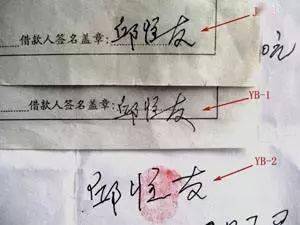 借款人签名盖章：邱恒友
J
元
借款人签名盖章：邱恒友
YB-1
邱恒友
YB-2